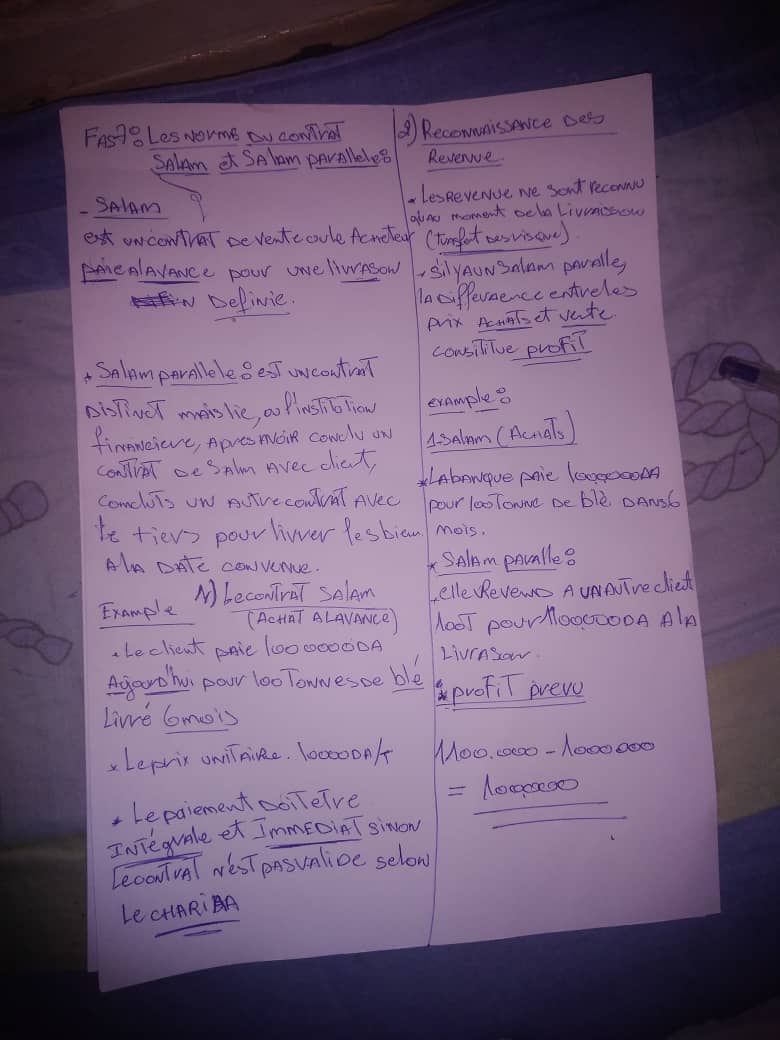 FAS7: Les NORME DU CONTRAT
SALAM et SALAM paralele:
- SALAM
est UN CONTRAT DE vente oule Acheteur
PAIE ALAVANCE pour UNE livrason
Definie.
* Salam parallele: est UN contrat
DISTINCT mais lie, ou l'institution
financiere, APRES AVOIR conclu UN
CONTRAT De Salm Avec client,
CONCLUTS UN AUTRE CONTRAT AVEC
le tiers pour livrer les bien
A la DATE CONVENUE.
Example 1) Le contrat SALAM
(ACHAT ALAVANCE)
* Le client paie 1000000DA
Aujourd'hui pour 100 TONNES De blé
Livré 6 mois
* Le prix UNITAIRE. 10000DA/T
* Le paiement DOIT ETRE
INTÉGRALE et IMMEDIAT SINON
Le CONTRAT N'EST PAS VALIDE selon
Le CHARIAA
2) Reconnaissance Des
Revenue.
* Les REVENUE NE SONT RECONNU
qu'au moment De la Livraisson
(Tansfert Des risque).
* S'il Y A UN SALAM paralle,
la Differaence entre les
prix ACHATS et vente
consititue profit
example:
1-SALAM (ACHATS)
* LA banque paie 1000000DA
pour 100 TONNE De blé DANS 6
mois.
* SALAM paralle:
elle Revend A UN Autre client
100T pour 1100000DA A la
Livrason.
* profit prevu
1100.000 - 1000000
= 1000000